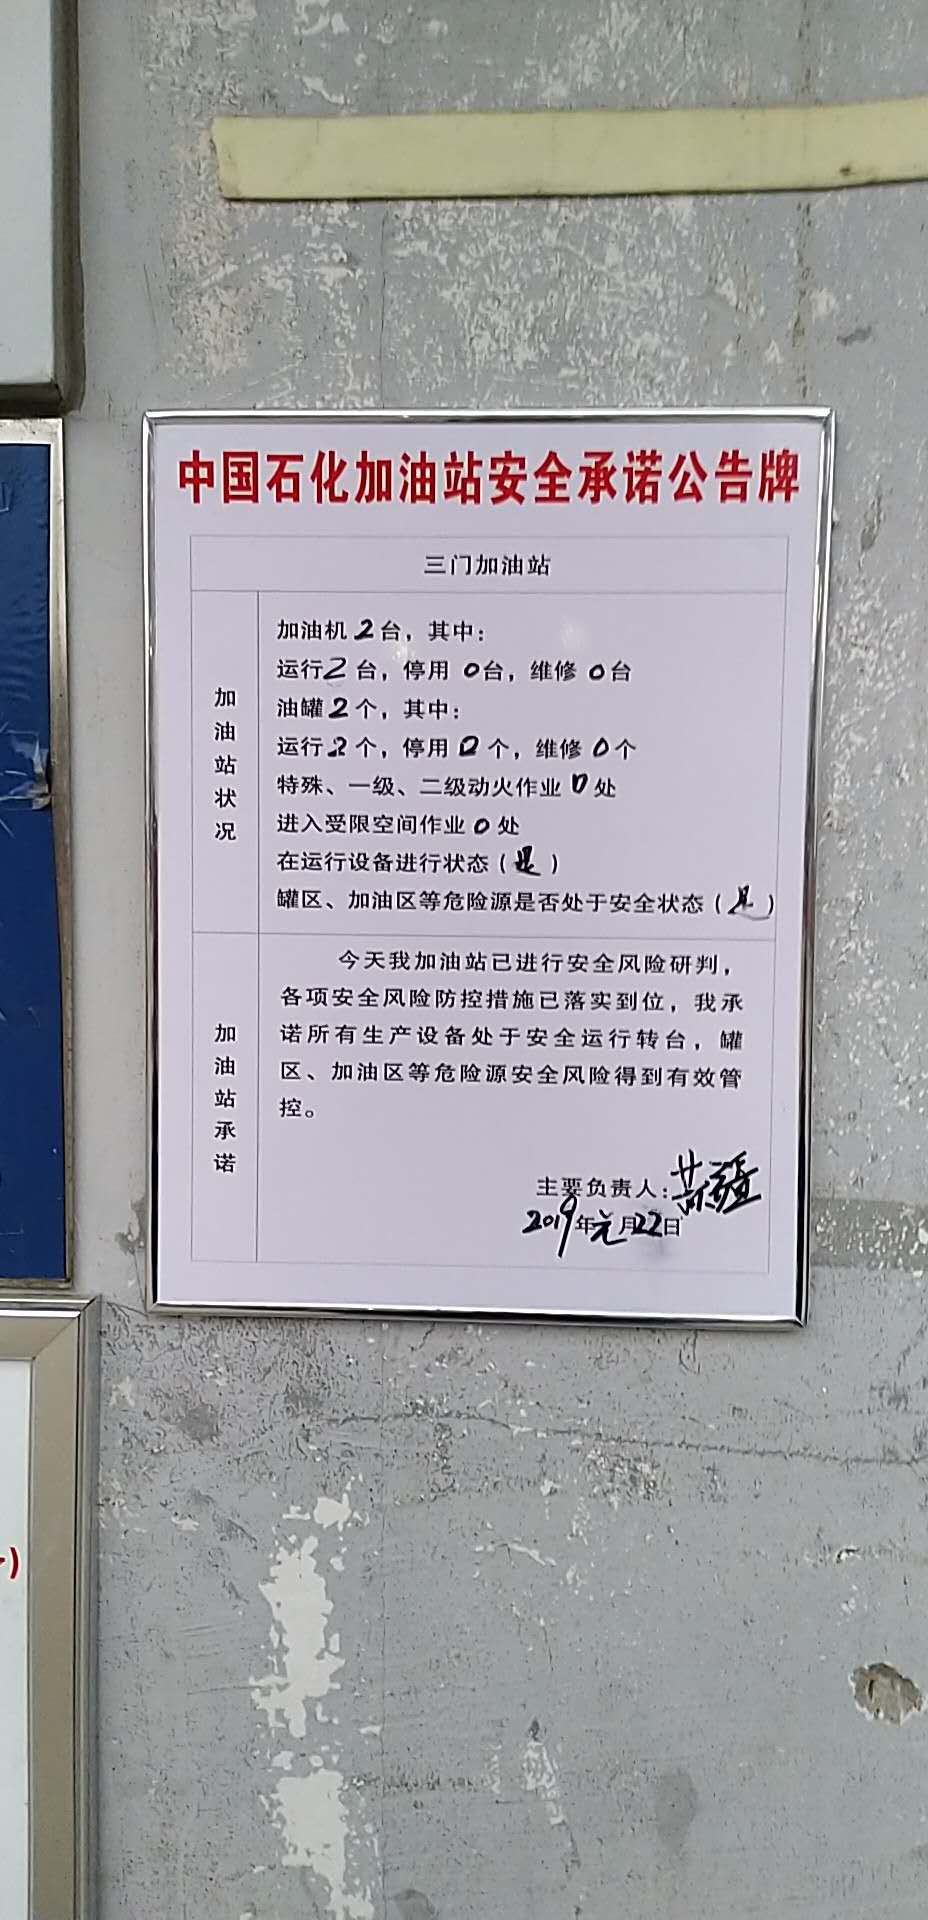 中国石化加油站安全承诺公告牌
三门加油站
加油站状况
加油机2台，其中：
运行2台，停用0台，维修0台
油罐2个，其中：
运行2个，停用0个，维修0个
特殊、一级、二级动火作业0处
进入受限空间作业0处
在运行设备进行状态（是）
罐区、加油区等危险源是否处于安全状态（是）
加油站承诺
今天我加油站已进行安全风险研判，
各项安全风险防控措施已落实到位，我承
诺所有生产设备处于安全运行转台，罐
区、加油区等危险源安全风险得到有效管
控。
主要负责人：
2019年元月22日